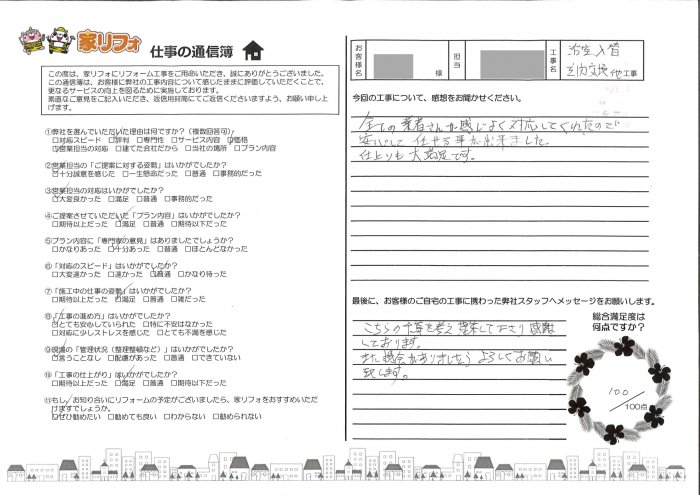 家リフォ 仕事の通信簿
この度は、家リフォにリフォーム工事をご用命いただき、誠にありがとうございました。
この通信簿は、お客様に弊社の工事内容について感じたままに評価していただくことで、
更なるサービスの向上を図るために実施しております。
素直なご意見をご記入いただき、返信用封筒にてご返信くださいますよう、お願い申し上
げます。
①弊社を選んでいただいた理由は何ですか?(複数回答可)
□対応スピード □評判 □専門性 □サービス内容 □価格
□営業担当の対応 □建てた会社だから □当社の場所 □プラン内容
②営業担当の「ご提案に対する姿勢」はいかがでしたか?
□十分誠意を感じた □一生懸命だった □普通 □事務的だった
③営業担当の対応はいかがでしたか?
□大変良かった □満足 □普通 □事務的だった
④ご提案させていただいた「プラン内容」はいかがでしたか?
□期待以上だった □満足 □普通 □期待以下だった
⑤プラン内容に「専門家の意見」はありましたでしょうか?
□かなりあった □十分あった □普通 □ほとんどなかった
⑥「対応のスピード」はいかがでしたか?
□大変速かった □速かった □普通 □かなり待った
⑦「施工中の仕事の姿勢」はいかがでしたか?
□期待以上だった □満足 □普通 □雑だった
⑧「工事の進め方」はいかがでしたか?
□とても安心していられた □特に不安はなかった
□対応に少しストレスを感じた □とても不満を感じた
⑨現場の「管理状況(整理整頓など)」はいかがでしたか?
□言うことなし □配慮があった □普通 □できていない
⑩「工事の仕上がり」はいかがでしたか?
□期待以上だった □満足 □普通 □期待以下だった
⑪もし、お知り合いにリフォームの予定がございましたら、家リフォをおすすめいただ
けますでしょうか。
□ぜひ勧めたい □勧めても良い □わからない □勧められない
お客様名 様 担当 工事名 浴室入替 他工事
今回の工事について、感想をお聞かせください。
全ての業者さんが感じよく対応してくれたので
安心して任せる事が出来ました。
仕上りも大満足です。
最後に、お客様のご自宅の工事に携わった弊社スタッフへメッセージをお願いします。
こちらの予算を考え提案して下さり感謝
しております。
また機会がありましたらよろしくお願い
致します。
総合満足度は
何点ですか?
100
/100点